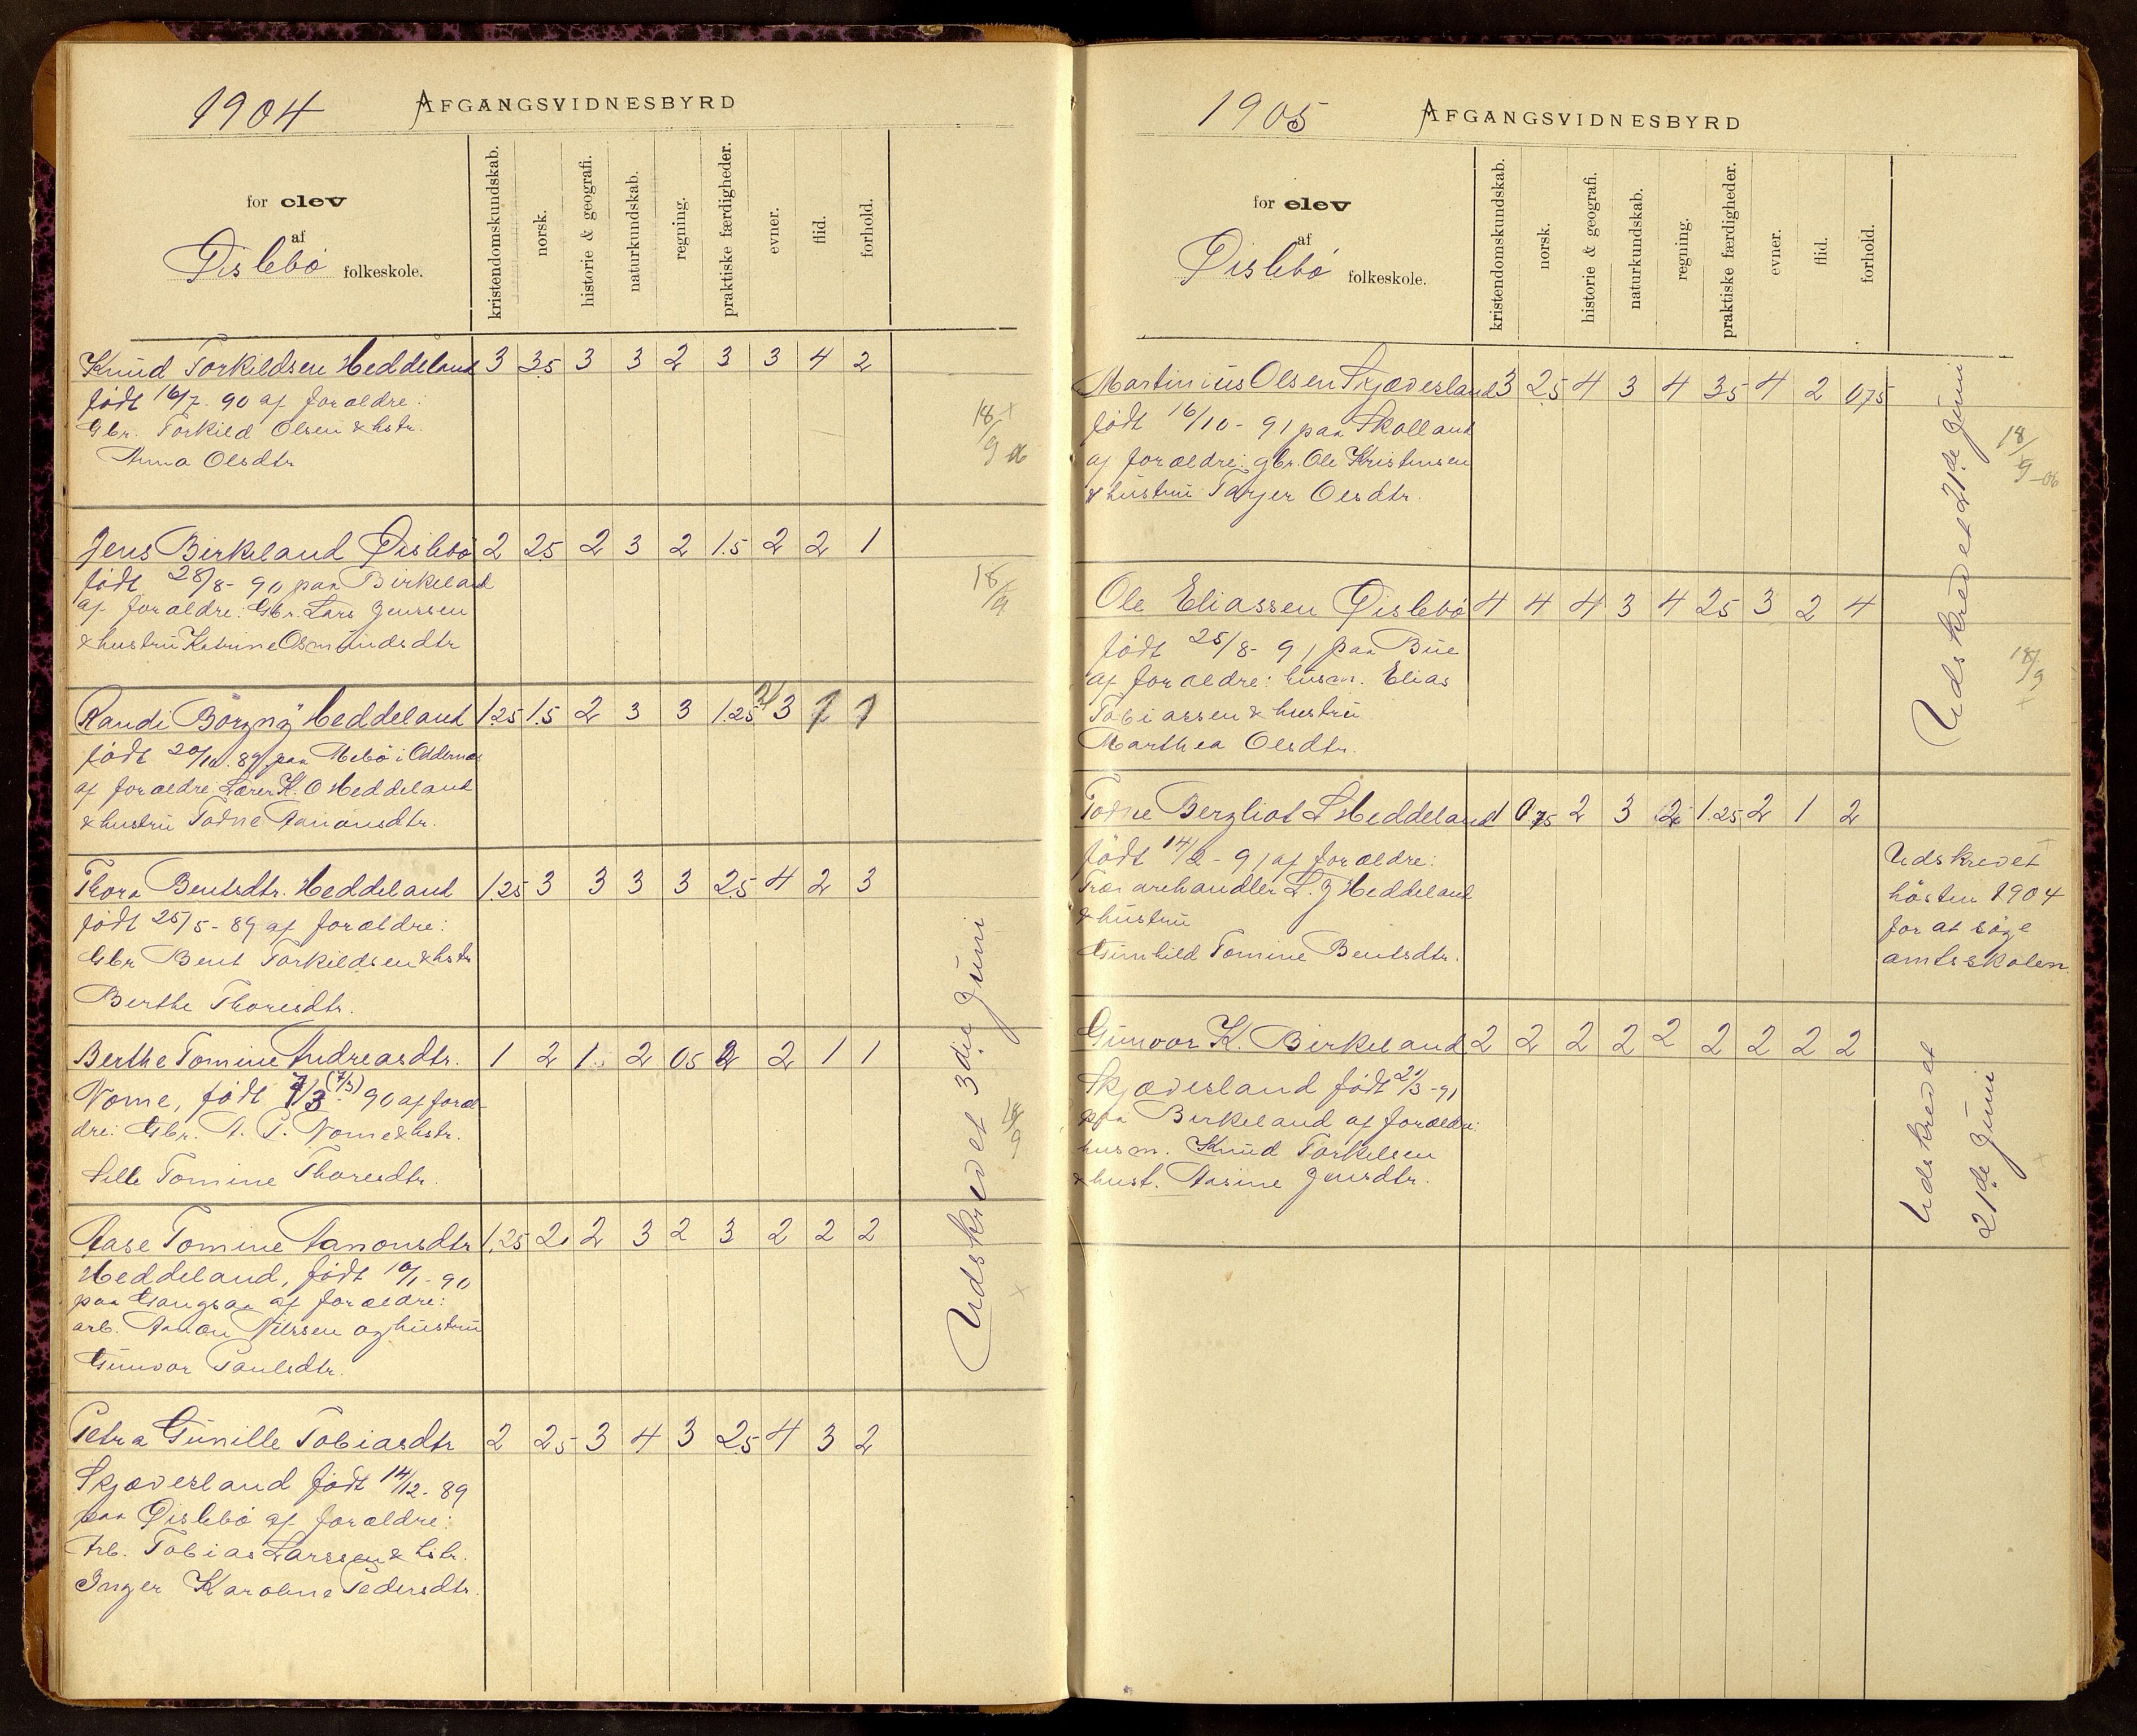 1904 AFGANGSVIDNESBYRD
for elev
af
Øislebø folkeskole.
kristendomskundskab.
norsk.
historie & geografi.
naturkundskab.
regning.
praktiske færdigheder.
evner.
flid.
forhold.
Knud Torkildsen Heddeland 3 3.5 3 3 2 3 3 4 2
født 16/7 - 90 af forældre:
Gbr. Torkild Olsen & hstr.
Anna Olsdtr
18/9 06
Jens Birkeland Øislebø 2 2.5 2 3 2 1.5 2 2 1
født 28/8 - 90 paa Birkeland
af forældre: Gbr. Lars Jenssen
& hustru Katrine Osmundsdtr
18/9
Randi Börgny Heddeland 1.25 1.5 2 3 3 1.25 3 1 1
født 20/10. 89 paa Mebø i Oddernes
af forældre: Lærer K. O Heddeland
& hustru Todne Aanonsdtr.
Thora Bentsdtr. Heddeland 1.25 3 3 3 3 2.5 4 2 3
født 25/5 - 89 af forældre:
Gbr Bent Torkildsen & hstr
Berthe Thoresdtr.
Berthe Tomine Andreasdtr. 1 2 1. 2 0.5 2 2 1 1
Nome, født 7/3 (7/3) 90 af foræl-
dre: Gbr. A. P. Nome & hstr.
Sille Tomine Thoresdtr.
18/9
Aase Tomine Aanonsdtr 1.25 2. 2 3 2 3 2 2 2
Heddeland, født 10/1 - 90
paa Gangsaa af forældre:
arb. Aanon Nilssen og hustru
Gunvor Paulsdtr.
Petra Gunille Tobiasdtr 2 2.5 3 4 3 2.5 4 3 2
Skjævesland født 14/12. 89
paa Øislebø af forældre:
Arb. Tobias Larssen & hstr.
Inger Karoline Pedersdtr.
Udskrevet 3die Juni
1905 AFGANGSVIDNESBYRD
for elev
af
Øislebø folkeskole.
kristendomskundskab.
norsk.
historie & geografi.
naturkundskab.
regning.
praktiske færdigheder.
evner.
flid.
forhold.
Martinius Olsen Skjævesland 3 2.5 4 3 4 3.5 4 2 0.75
født 16/10 - 91 paa Skolland
af forældre: gbr. Ole Kristensen
& hustru Tarjer Olsdtr.
18/9 - 06
Ole Eliassen Øislebø 4 4 4 3 4 2.5 3 2 4
født 25/8 - 91 paa Bue
af forældre: husm. Elias
Tobiassen & hustru
Marthea Olsdtr.
18/9
Udskrevet 21de Juni
Todne Bergliot L Heddeland 1 0.75 2 3 2 1.25 2 1 2
født 14/2 - 91 af forældre:
Trævarehandler L. J Heddeland
& hustru
Gunhild Tomine Bentsdtr.
Udskrevet
høsten 1904
for at søge
amtsskolen.
Gunvor K. Birkeland 2 2 2 2 2 2 2 2 2
Skjævesland født 21/3 - 91
paa Birkeland af forældre:
husm. Knud Torkelsen
& hust. Aasine Jensdtr.
Udskrevet
21de Juni